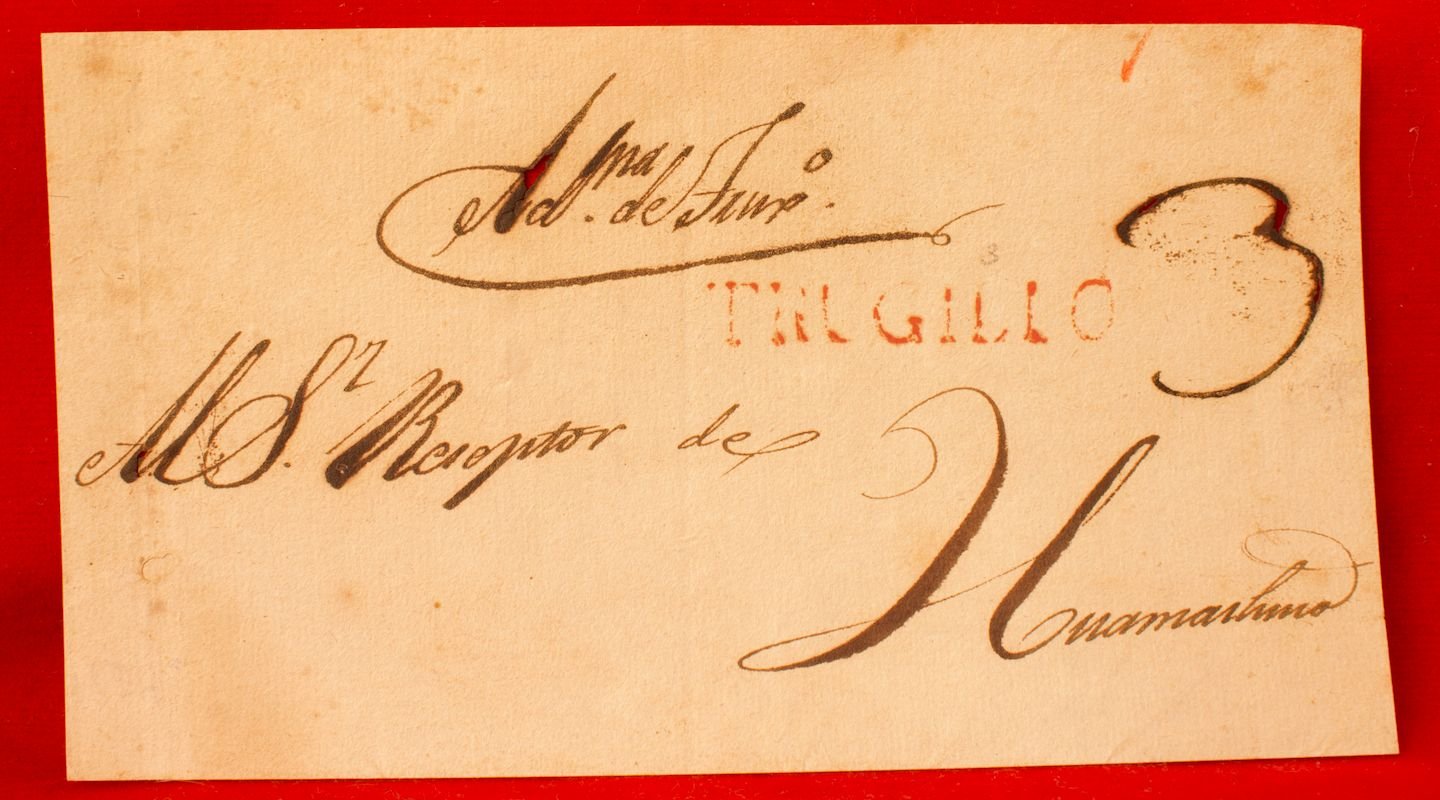 Adm.na de Truxo.
3
3
TRUGILLO
Al Sr. Receptor de
Huamachuco